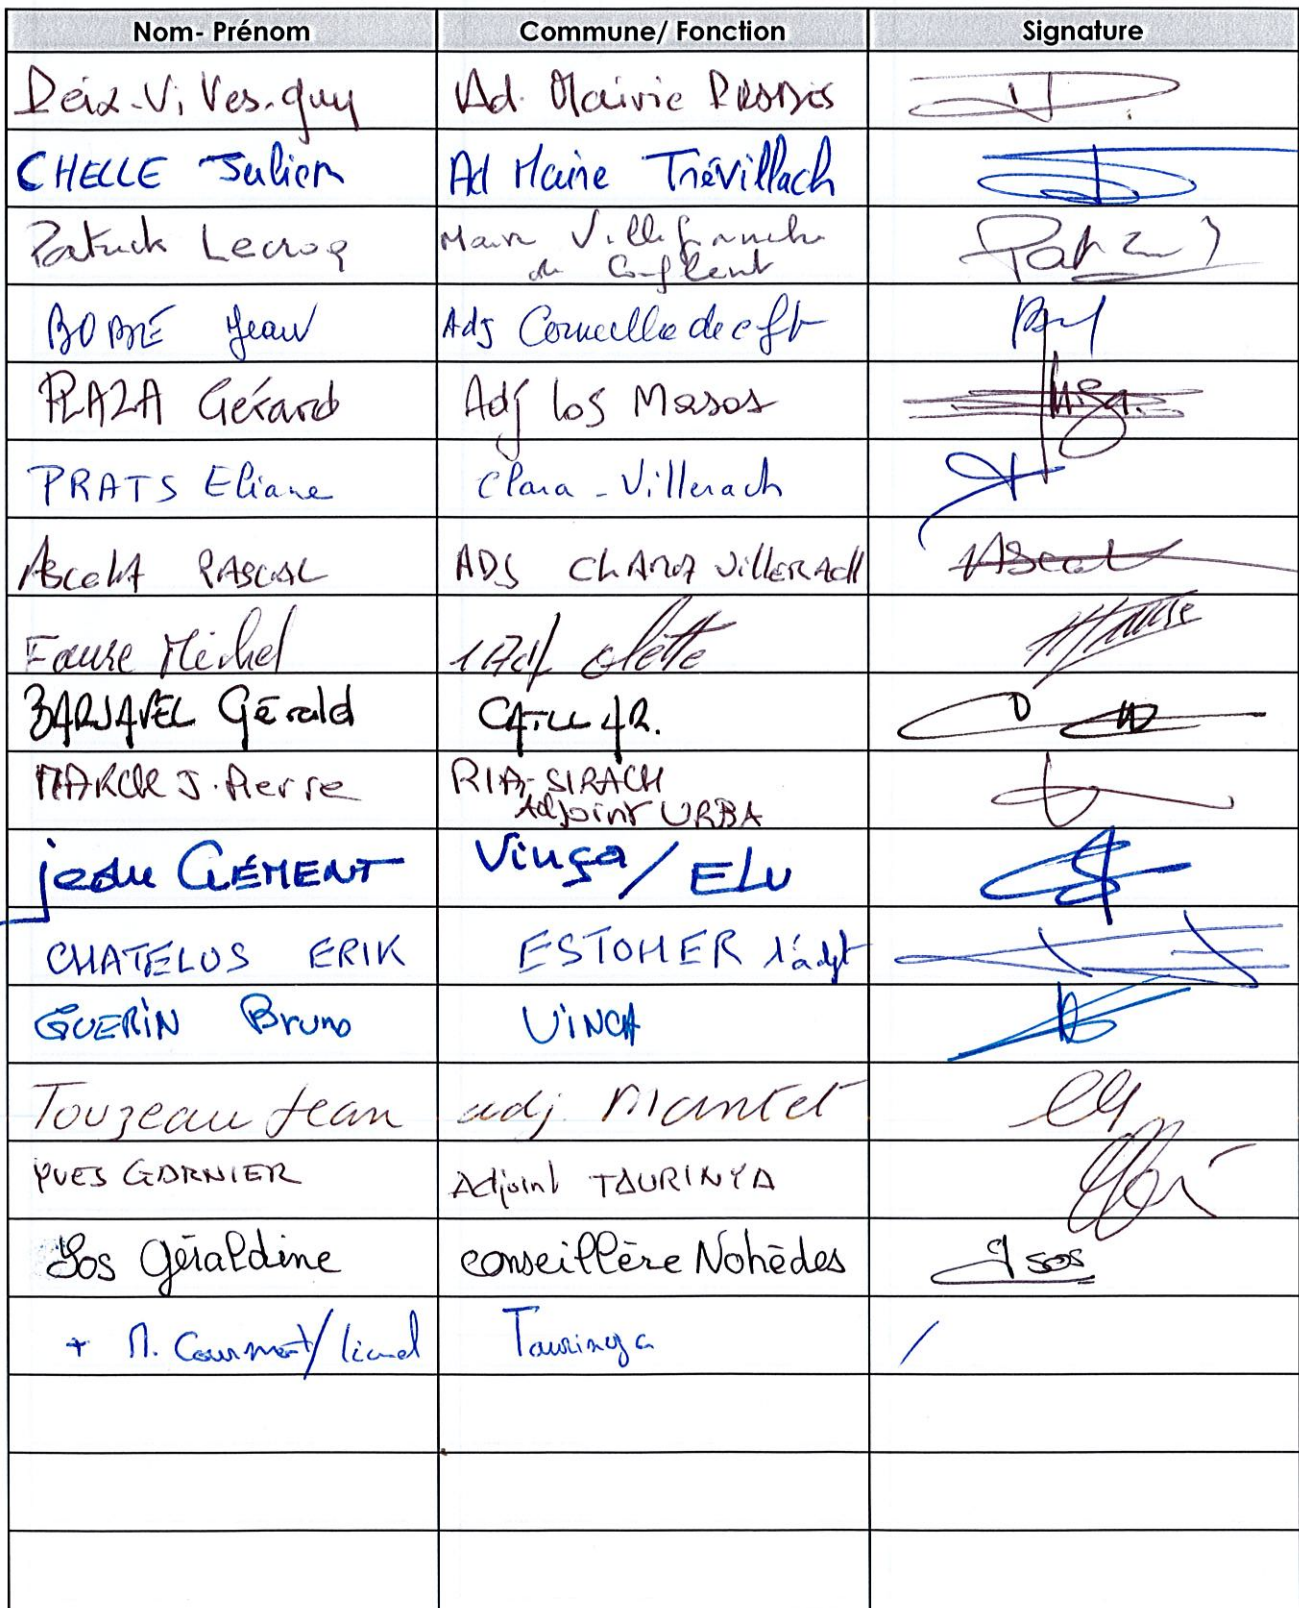 Nom- Prénom Commune/ Fonction Signature
Deix-Vi Ves-guy Ad. Mairie
CHELLE Julien Ad Maire Trévillach
Patrick Lecroq Maire Villefranche
de Conflent
BOBRE Jean Adj Corneilla de cft
PLAZA Gérard Adj los Masos
PRATS Eliane Clara - Villerach
PASCAL ADJ CLARA VILLERACH
Faure Michel 1 Adj Olette
BARJAVEL Gérald CATLLAR.
J. Pierre RIA-SIRACH
Adjoint URBA
jean CLÉMENT Vinça / ELU
CHATELUS ERIK ESTOHER 1° adjt
GUERIN Bruno VINCA
Touzeau Jean adj. Mantet
YVES GARNIER Adjoint TAURINYA
Sos Géraldine conseillère Nohèdes G sos
+ M. / lionel Taurinya /